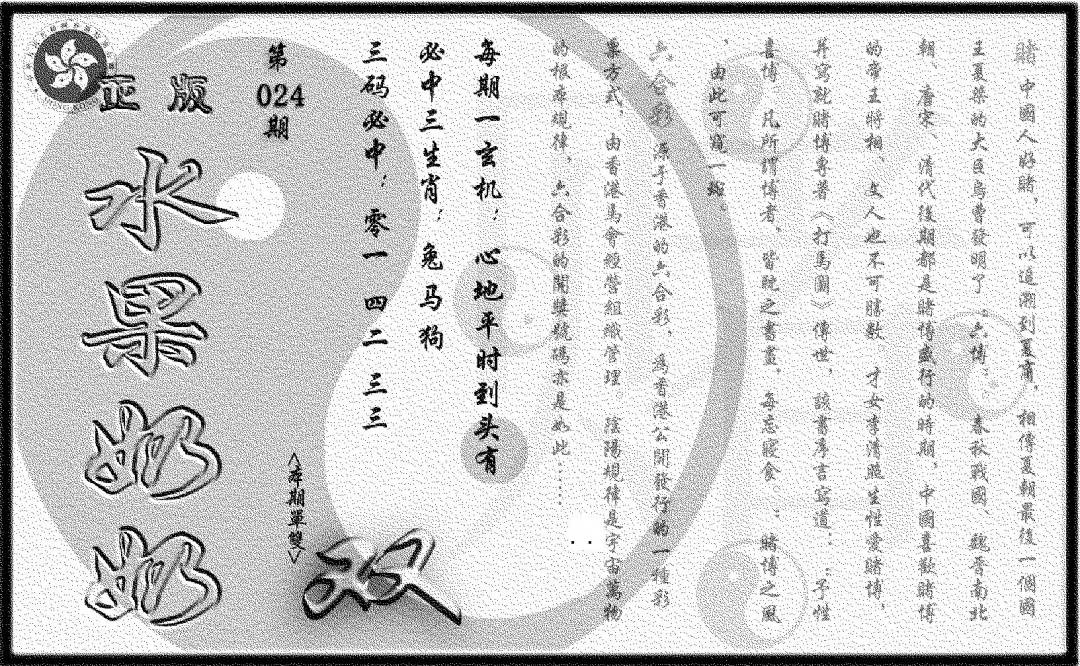 賭 中國人好賭，可以追溯到夏商，相傳夏朝最後一個國
王夏桀的大臣烏曹發明了：六博；春秋戰國、魏晉南北
朝、唐宋、清代後期都是賭博盛行的時期，中國喜歡賭博
的帝王將相、文人也不可勝數、才女李清照生性愛賭博，
并寫就賭博專著《打馬圖》傳世，該書序言寫道：：予性
喜博，凡所謂博者，皆耽之晝，每忘寢食；賭博之風
，由此可窺一斑。
六合彩 源于香港的六合彩，為香港公開發行的一種彩
票方式，由香港馬會經營組織管理。陰陽規律是宇宙萬物
的根本規律，六合彩的開獎號碼亦是如此……
每期一玄机；心地平时到头有
必中三生肖；兔马狗
三码必中；零一 四二 三三
第
024
期
正版
水果奶奶
HONG KONG
<本期單雙>
双